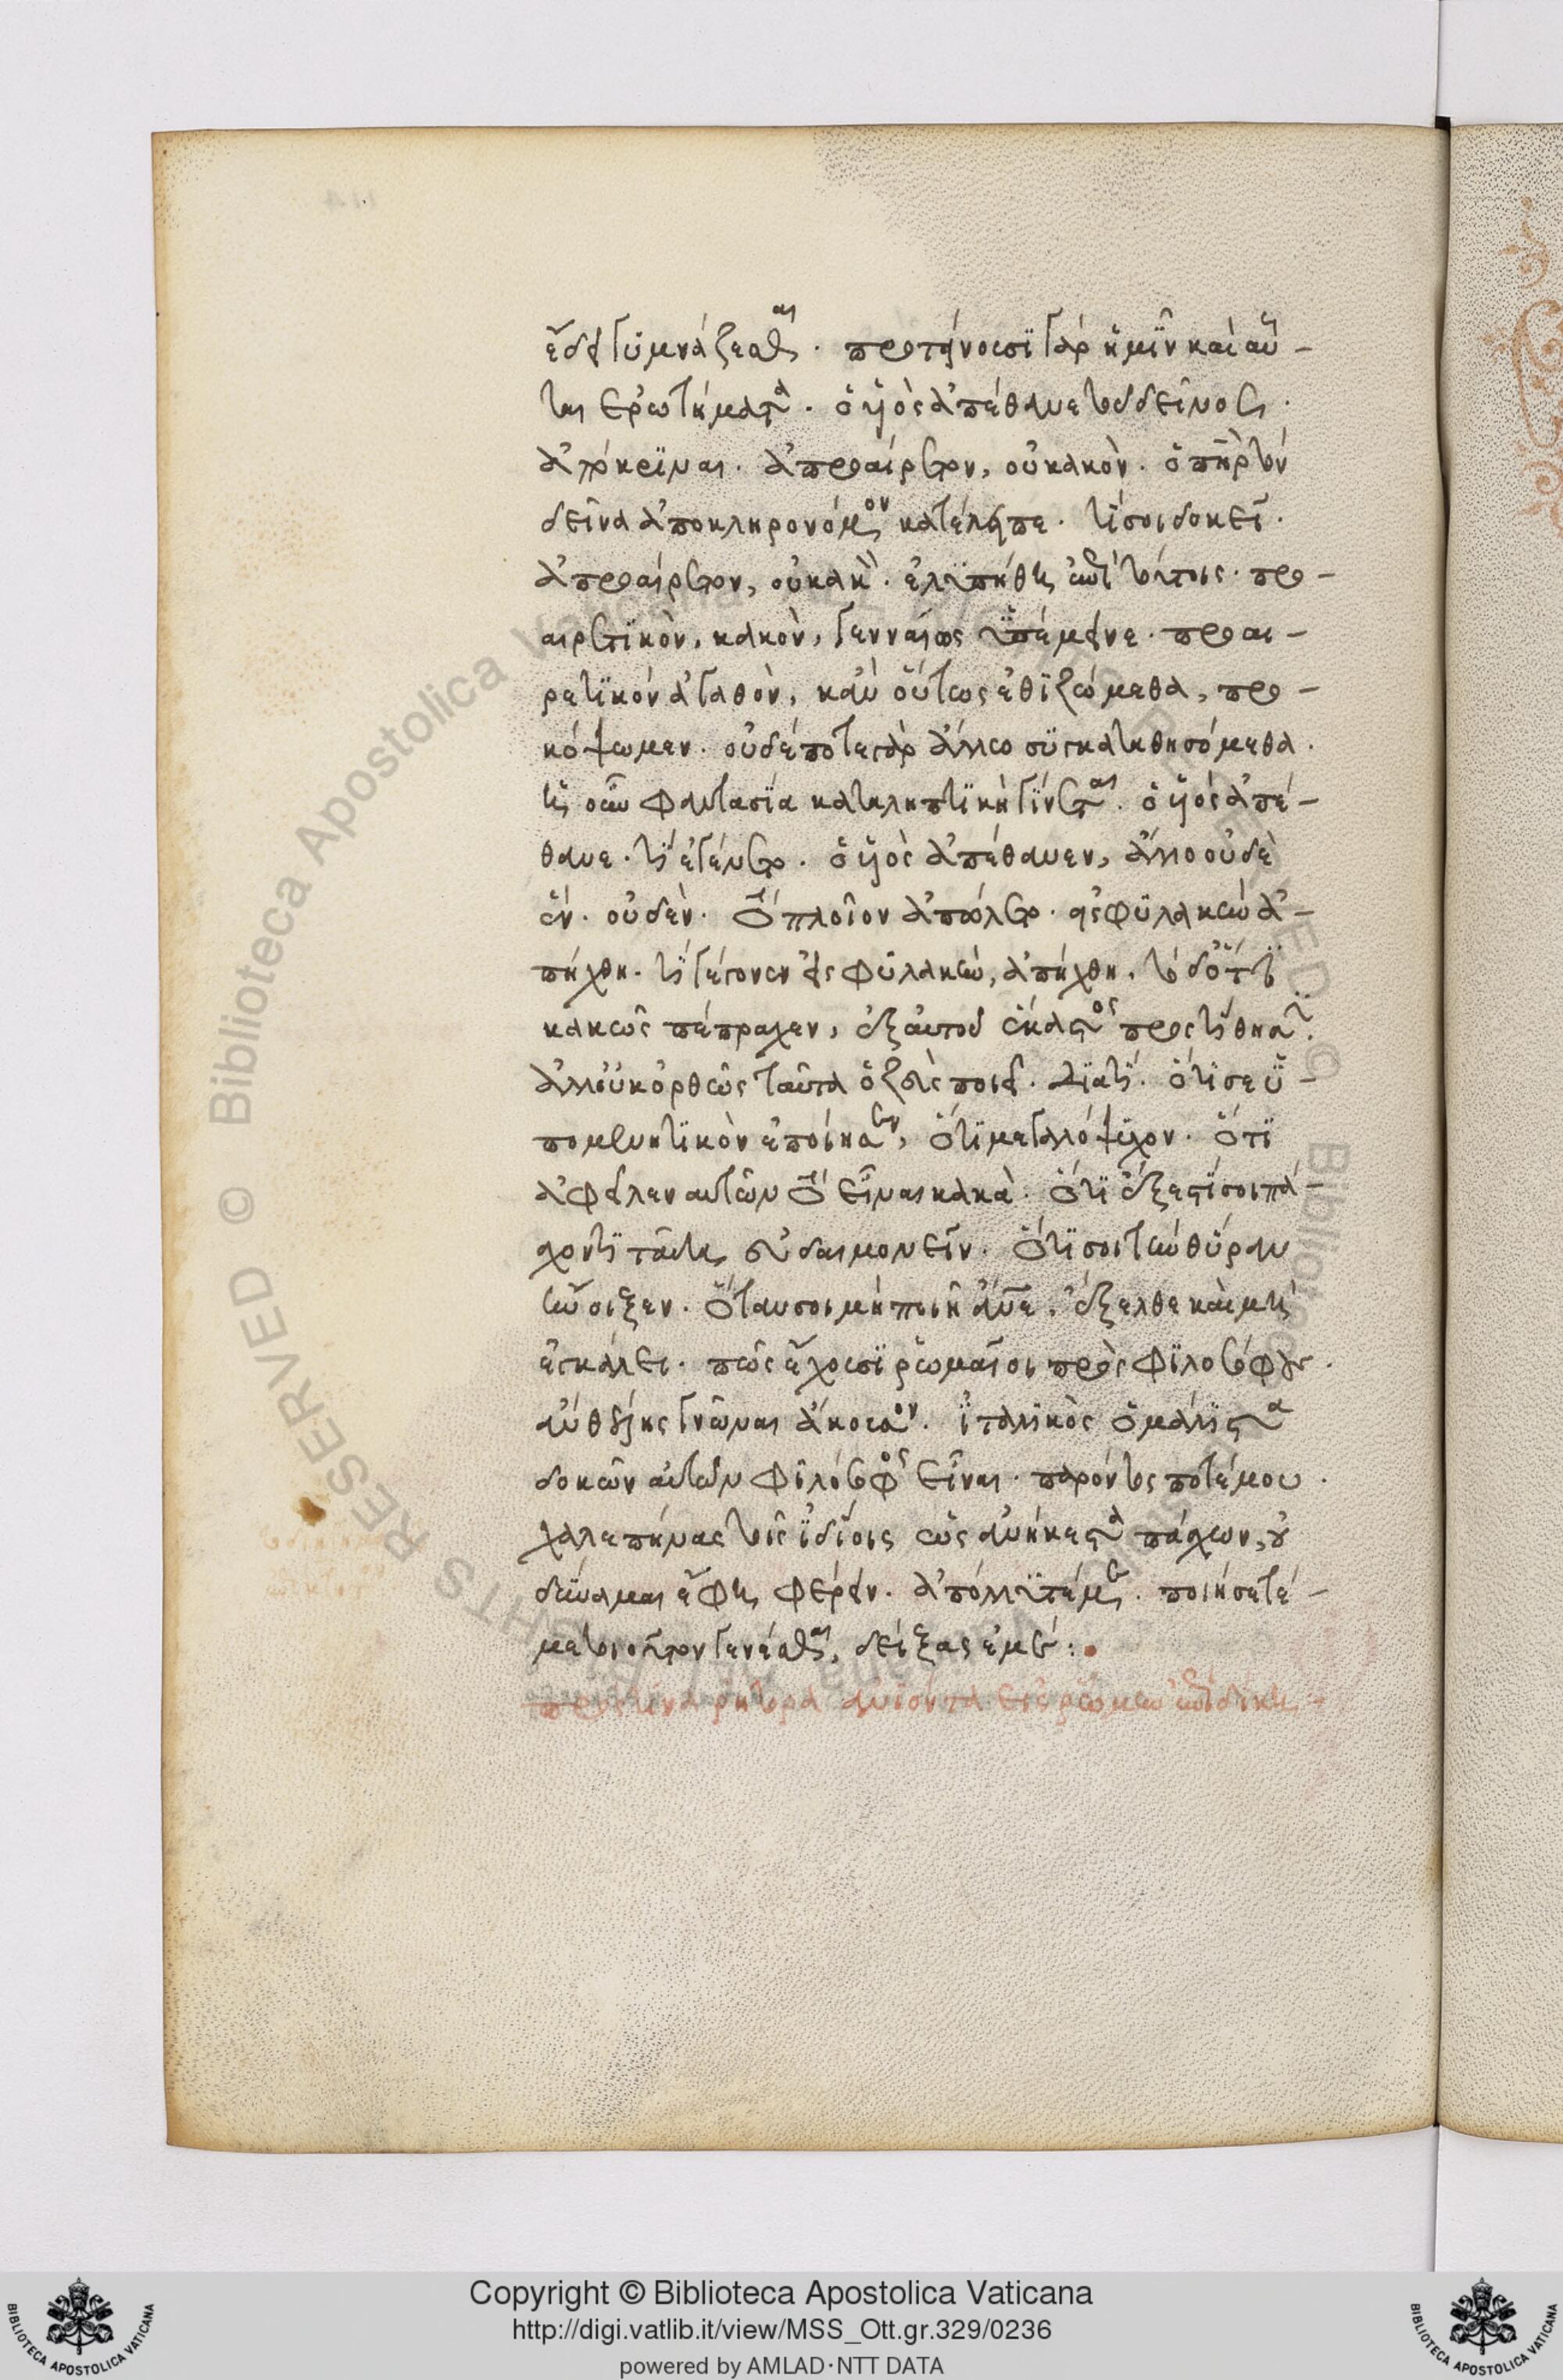 ἔδει γυμνάζεσθαι. προτείνουσϊ γὰρ ἡμῖν καὶ αὗ-
ται ἐρωτήματα. ὁ υἱὸς ἀπέθανε τοῦ δεῖνος.
ἀπόκρϊναι. ἀπροαίρετον, οὐ κακὸν. ὁ πηρ τὸν
δεῖνα ἀποκληρονόμον κατέλειπε. τί σοι δοκεῖ.
ἀπροαίρετον, οὐ κακὸν. ἐλϋπήθη ἐπὶ τούτοις. προ-
αιρετϊκὸν, κακὸν, γενναίως ϋπέμεινε. προαι-
ρετϊκὸν ἀγαθὸν, κἂν οὕτως ἐθϊζώμεθα, προ-
κόψωμεν. οὐδέποτε γὰρ ἄλλω συγκαταθησόμεθα.
ἢ οὗ φαντασϊα καταληπτϊκὴ γϊνεται. ὁ υἱὸς ἀπέ-
θανε. τί ἐγένετο. ὁ υἱὸς ἀπέθανεν, ἄλλο οὐδὲ
ἓν. οὐδὲν. τὸ πλοῖον ἀπώλετο. εἰς φϋλακὴν ἀ-
πήχθη. τί γέγονεν εἰς φϋλακὴν, ἀπήχθη. τὸ δ ὅτϊ
κακῶς πέπραχεν, ἐξ αυτοῦ ἕκαστος προστίθησι.
ἀλλ οὐκ ὀρθῶς ταῦτα ὁ ζεὺς ποιεῖ. δϊατί. ὅτϊ σε ϋ-
πομενητϊκὸν ἐποίησεν, ὅτϊ μεγαλόψϋχον. ὅτϊ
ἀφεῖλεν αυτῶν τὸ εἶναι κακὰ. ὅτϊ ἔξεστϊ σοι πά-
χοντι ταῦτα εὐδαιμονεῖν. ὅτϊ σοι τὴν θύραν
ἤνοιξεν. ὅταν σοι μὴ ποιῆ ἄνε. ἔξελθε καὶ μὴ
ἐγκάλει. πῶς ἔχουσϊ ῥωμαῖοι πρὸς φϊλοσόφους.
ἂν θέλης γνῶναι ἄκουσον. ϊταλϊκὸς ὁ μάλϊστα
δοκῶν αὐτῶν φϊλόσοφος εἶναι. παρόντος ποτέ μου.
χαλεπήνας τοῖς ϊδίοις ὡς ἀνήκεστα πάχων, οὐ
δύναμαι ἔφη φέρειν. ἀπόλλϋτέ με. ποιήσετέ-
με τοιοῦτον γενέσθαι, δείξας ἐμέ:.
πρὸς τίνα ρήτορα ἀνϊόντα εἰς ρώμην ἐπὶ δίκη-